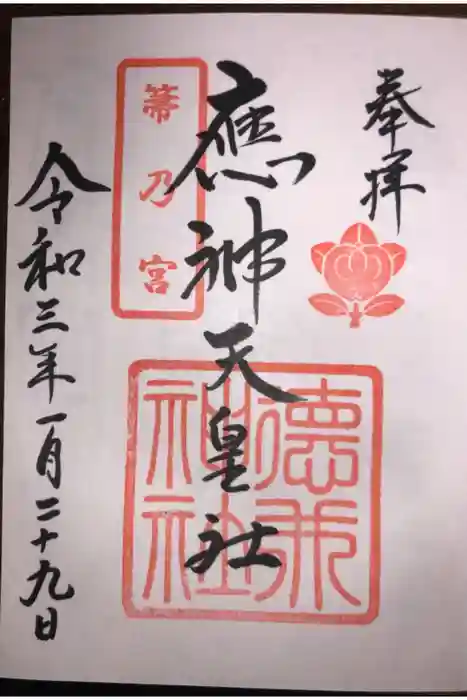 奉拝
應神天皇社
箒乃宮
徳威神社
令和三年一月二十九日